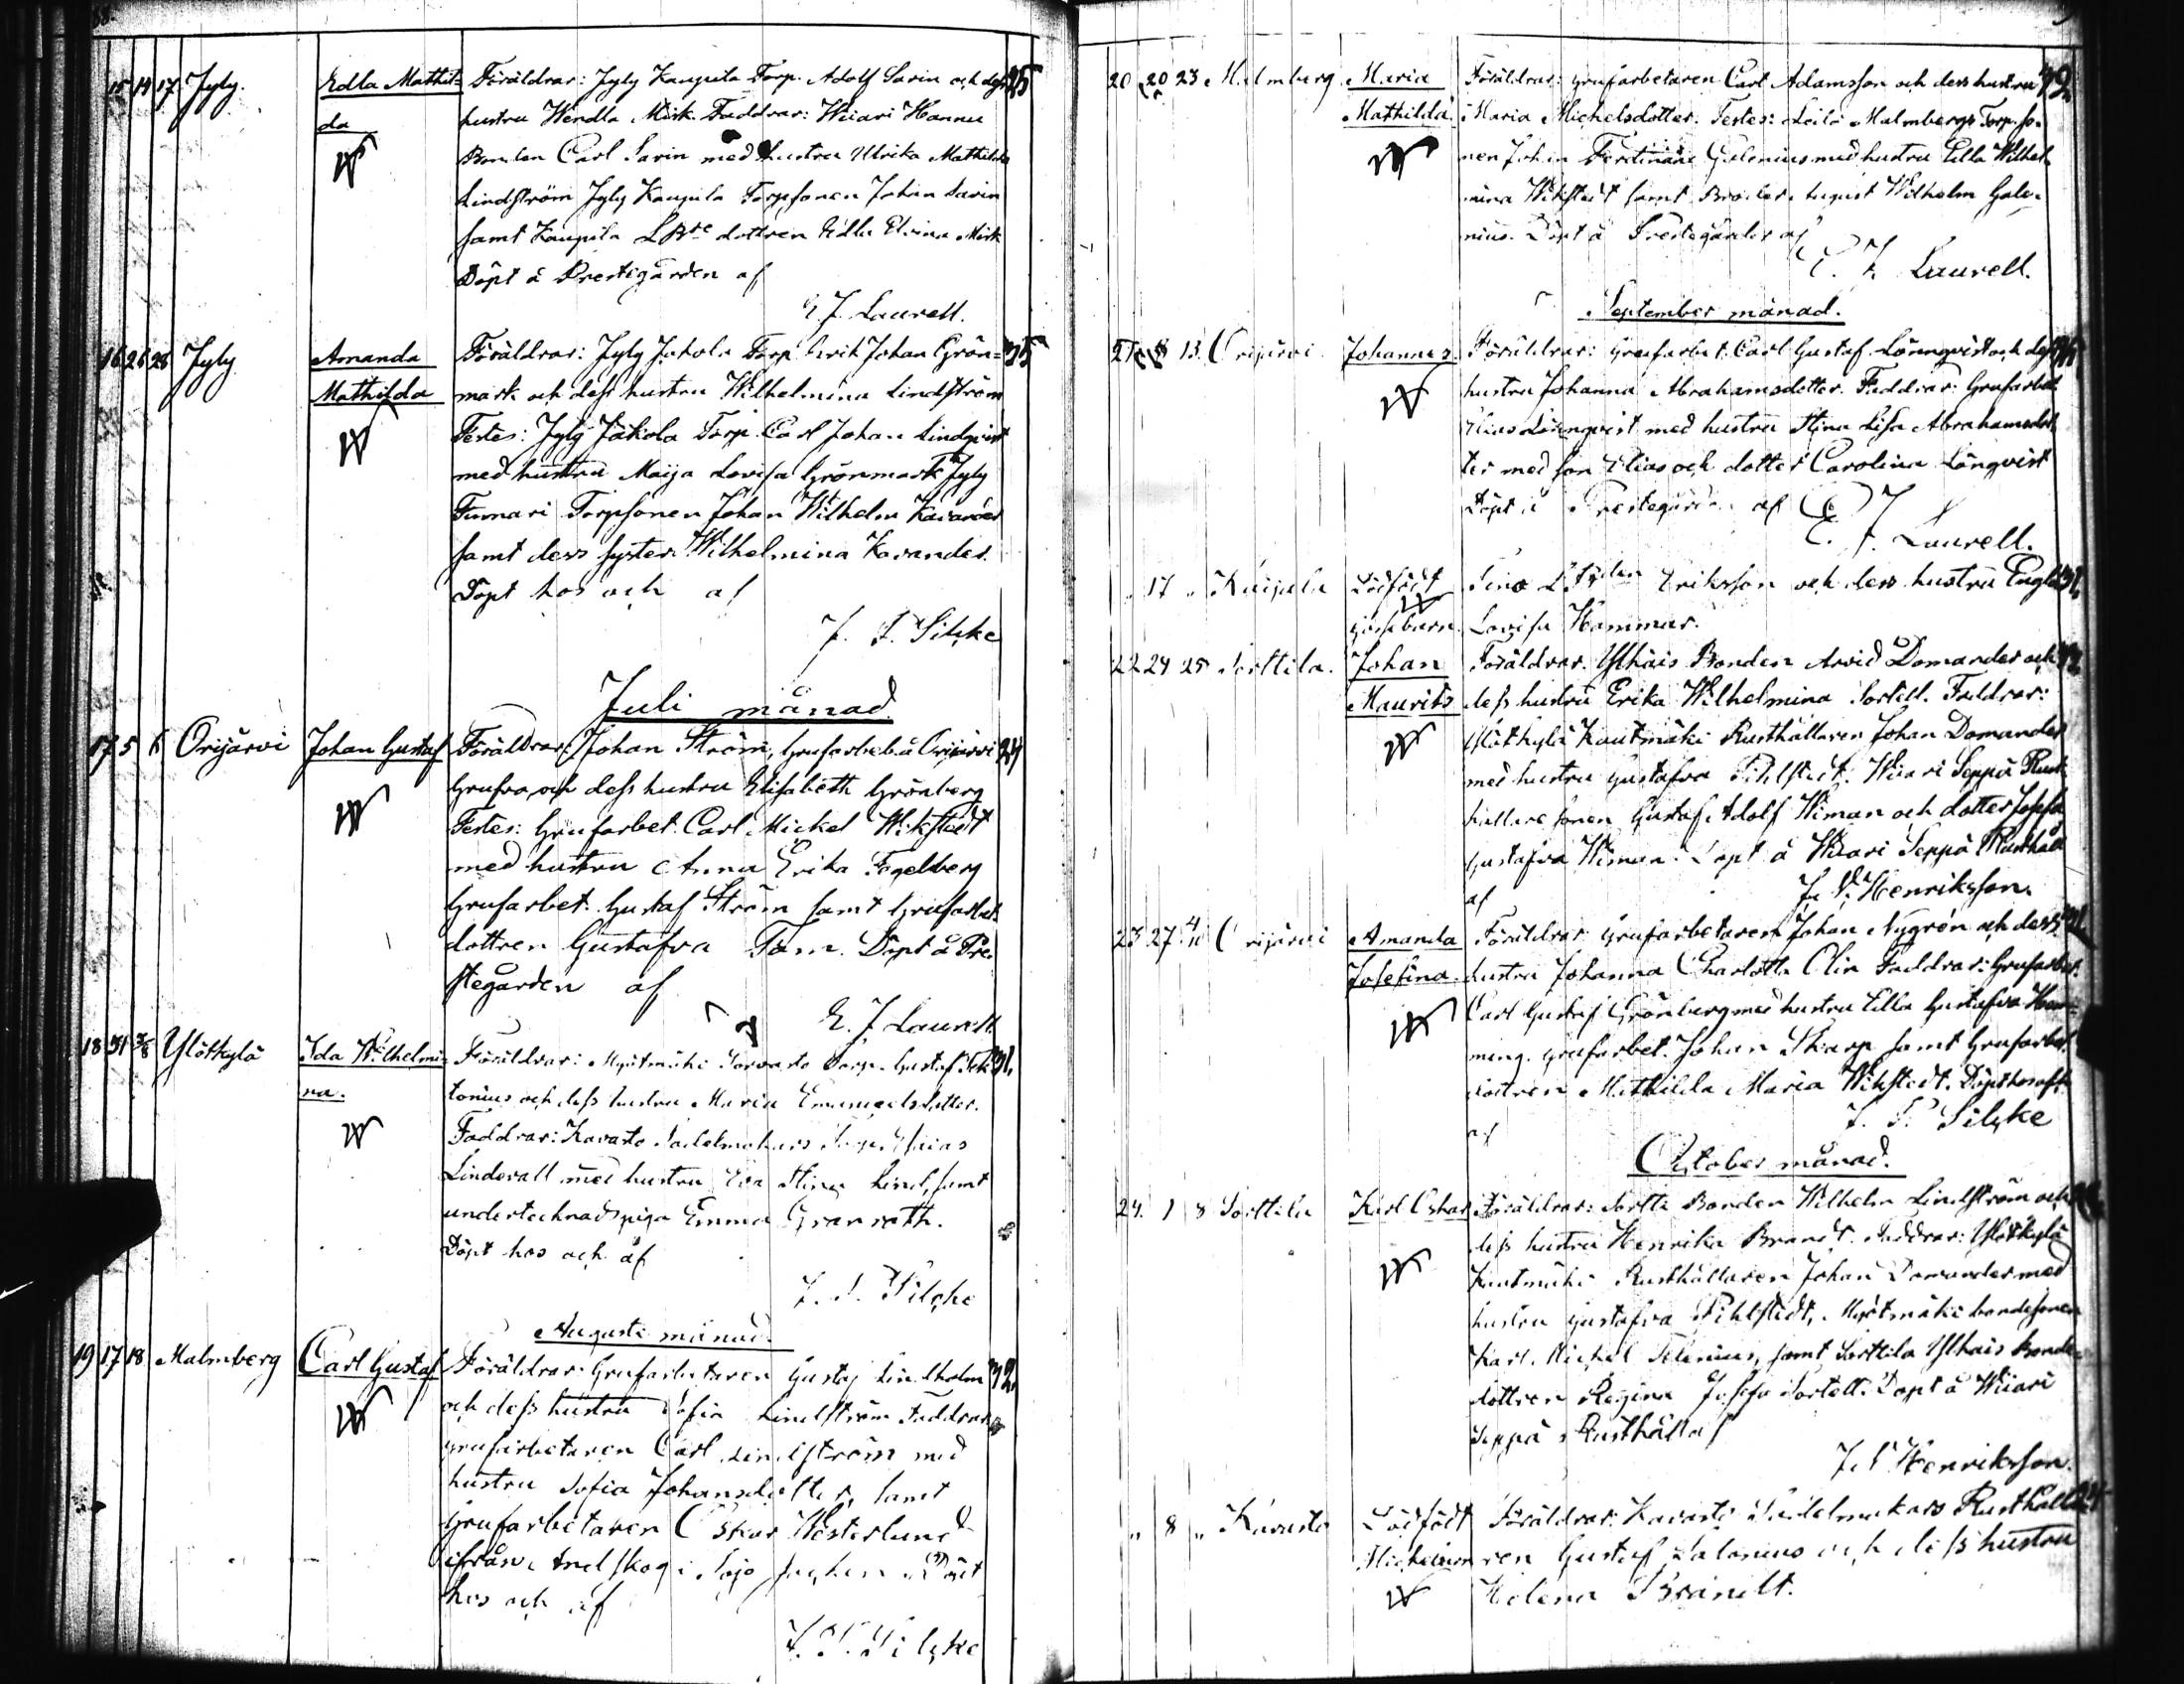 15 14 17 Jyly. Edla Mathil= Föräldrar: Jyly Kaupila Torp. Adolf Sarin och dess 25
da hustru Wendla Mörk. Faddrar: Wiiari Hannu
Bonden Carl Sarin med hustru Ulrika Mathilda
Lindström Jyly Kaupila Torpsonen Johan Sarin
samt Kaupila dottren Edla Elvina Mörk
Döpt å Prestegården af
E. J. Laurell.
16 26 28 Jyly Amanda Föräldrar: Jyly Jakola Torp. Erik Johan Grön= 35
Mathilda mark och dess hustru Wilhelmina Lindström
Testes: Jyly Jäkola Torp. Carl Johan Lindqvist
med hustru Maija Lovisa Grönmark Jyly
Finnari Torpsonen Johan Wilhelm Kavander
samt dess syster Wilhelmina Kavander.
Döpt hos och af
J. F. Silcke
Juli månad
17 5 6 Orijärvi Johan Gustaf Föräldrar: Johan Ström, Grufarbet. å Orijärvi 24
Grufva, och dess hustru Elisabeth Grönberg
Testes: Grufarbet. Carl Mickel Wikstedt
med hustru Anna Erika Fogelberg
Grufarbet. Gustaf Ström samt Grufarbet.
dottren Gustafva Tam. Döpt å Pre-
stegården af
E. J. Laurell.
18 31 3/8 Ylötkylä Ida Wilhelmi- Föräldrar: Myötmäki Torp. Gustaf 31.
na. tonius och dess hustru Maria Emanuelsdotter.
Faddrar: Kavasto Sadelmakars Torp. Esaias
Linderall med hustru Eva Stina Lind, samt
undertecknads piga Emma Granroth.
Döpt hos och af
J. F. Silcke
Augusti månad.
19 17 18 Malmberg Carl Gustaf Föräldrar: Grufarbetaren Gustaf Lindholm 32.
och dess hustru Sofia Lindström Faddrar
grufarbetaren Carl Lindström med
hustru Sofia Johansdotter, samt
Grufarbetaren Oskar Westerlund
ifrån i Lojo Socken Döpt
hos och af
J. F. Silcke
20 20 23 Malmberg. Maria Föräldrar: Grufarbetaren Carl Adamsson och dess hustru 42.
Mathilda. Maria Michelsdotter. Testes: Leilä Malmbergs Torp. so-
nen Johan Ferdinand Galenius med hustru Ulla Wilhel-
mina Wikstedt samt Broder August Wilhelm Gale-
nius. Döpt å Prestegården af
E. J. Laurell.
September månad.
21 8 13. Orijärvi Johannes. Föräldrar: Grufarbet. Carl Gustaf Lönnqvist och dess
hustru Johanna Abrahamsdotter. Faddrar: Grufarbet.
Elias Lönnqvist med hustru Stina Lisa Abrahamsdot-
ter med son Elias och dotter Carolina Lönqvist
Döpt å Prestegården af
E. J. Laurell.
" 17 " Kaijala Dödfödt Eriksson och dess hustru Engla 31.
gossebarn. Lovisa Hammar.
22 24 25 Sorttila. Johan Föräldrar. Ylhäis Bonden Arvid Domander och
Maurits dess hustru Erika Wilhelmina Sortell. Faddrar:
Ylötkylä Kautmäki Rusthållaren Johan Domander
med hustru Gustafva Pihlstedt. Wiiari Seppä Rust-
hållare sonen Gustaf Adolf Wiman och dotter Josefa
Gustafva Wiman. Döpt å Wiiari Seppä Rusthåll
af J. W. Henriksson.
23 27 4/10 Orijärvi Amanda Föräldrar: Grufarbetaren Johan Nygrén och dess
Josefina. hustru Johanna Charlotta Olin Faddrar: Grufarbet.
Carl Gustaf Grönberg med hustru Ulla Gustafva Hem-
ming. Grufarbet. Johan Skarp samt Grufarbet.
dottren Mathilda Maria Wikstedt. Döpt hos och
af J. F. Silcke
October månad.
24. 1 8 Sorttila Karl Oskar Föräldrar: Sortti Bonden Wilhelm Lindström och
dess hustru Henrika Brandt. Faddrar: Ylötkylä
Kautmäki Rusthållaren Johan Domander med
hustru Gustafva Pihlstedt, Myötmäki bondesonen
Karl Michel Selenius, samt Sorttila Ylhäis Bonde-
dottren Regina Josefa Sortell. Döpt å Wiiari
Seppä Rusthåll af
J. W. Henriksson.
" 8 " Kavasto Dödfödt Föräldrar: Kavasto Sadelmakars Rusthålla-
flickebarn ren Gustaf Salonius och dess hustru
Helena Brandt.